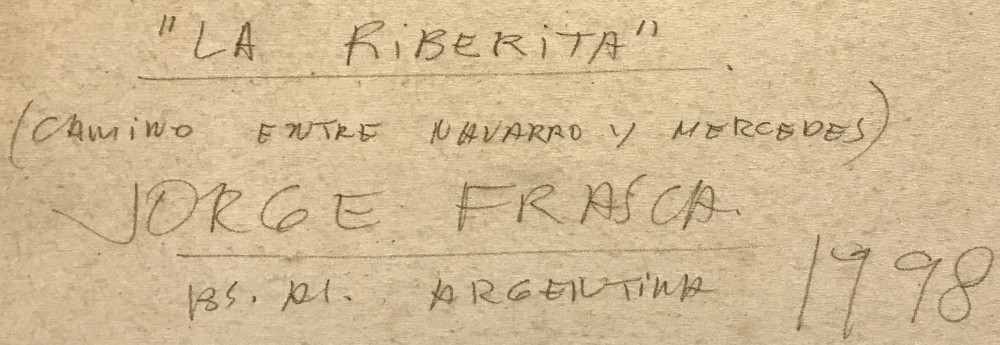 "LA RiBERiTA".
(CAMiNO ENTRE NAVARRO y MERCEDES)
JORGE FRASCA.
BS. AS. ARGENTiNA
1998